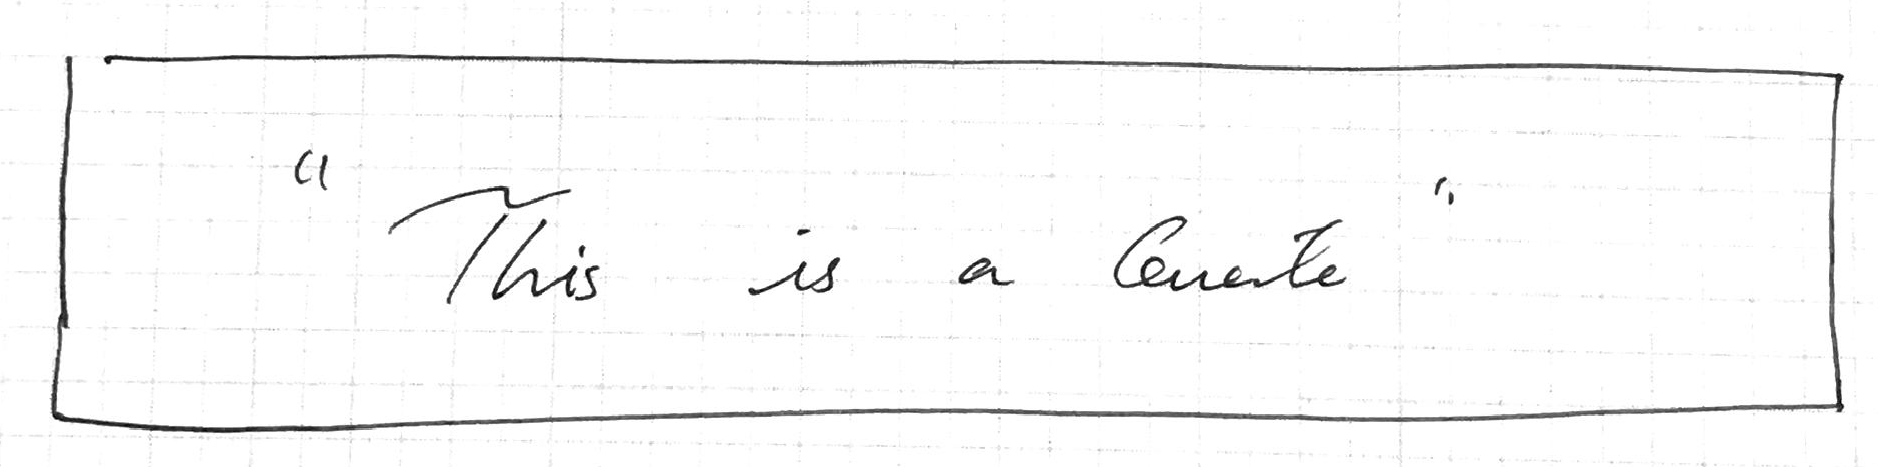 " This is a Quote "